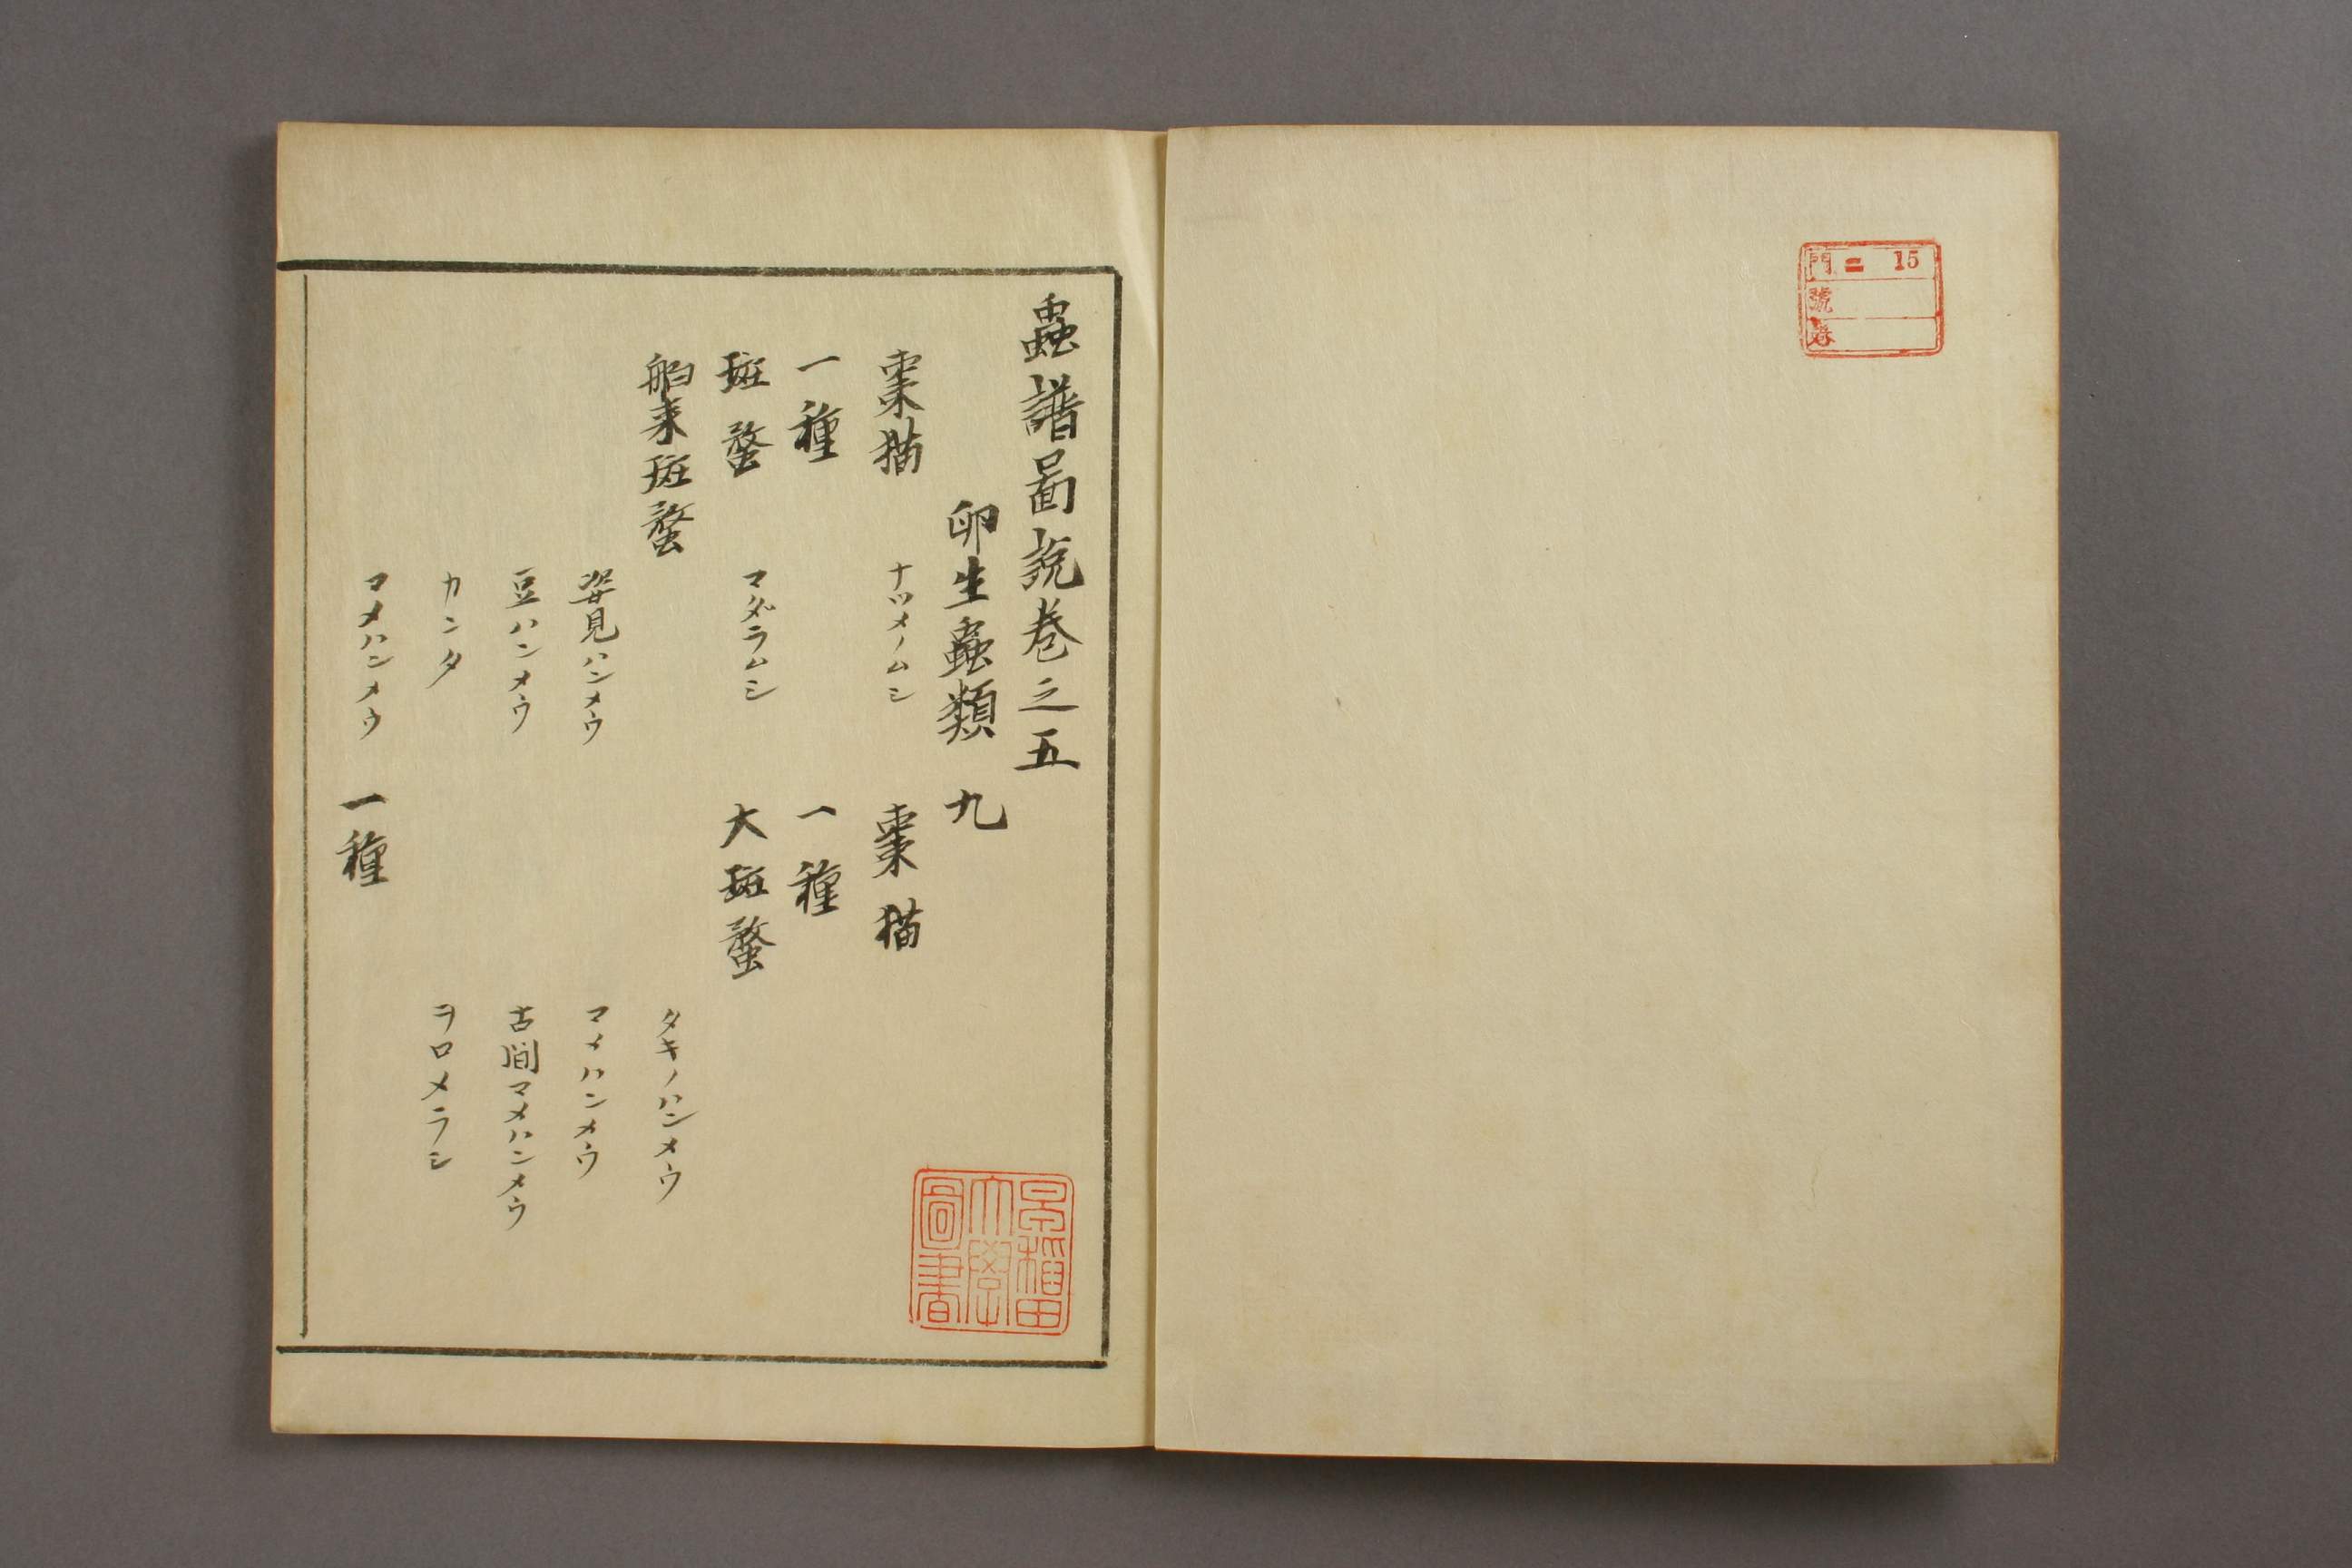 門 二 15
號
巻
蟲譜啚説巻之五
卵生蟲類 九
棗猫 ナツメノムシ 棗猫
一種 一種
斑蝥 マダラムシ 大斑蝥
舶来斑蝥 タキノハンメウ
姿見ハンメウ マメハンメウ
豆ハンメウ 古間マメハンメウ
カンタ ヲロメラシ
マメハンメウ 一種
早稲田大學圖書